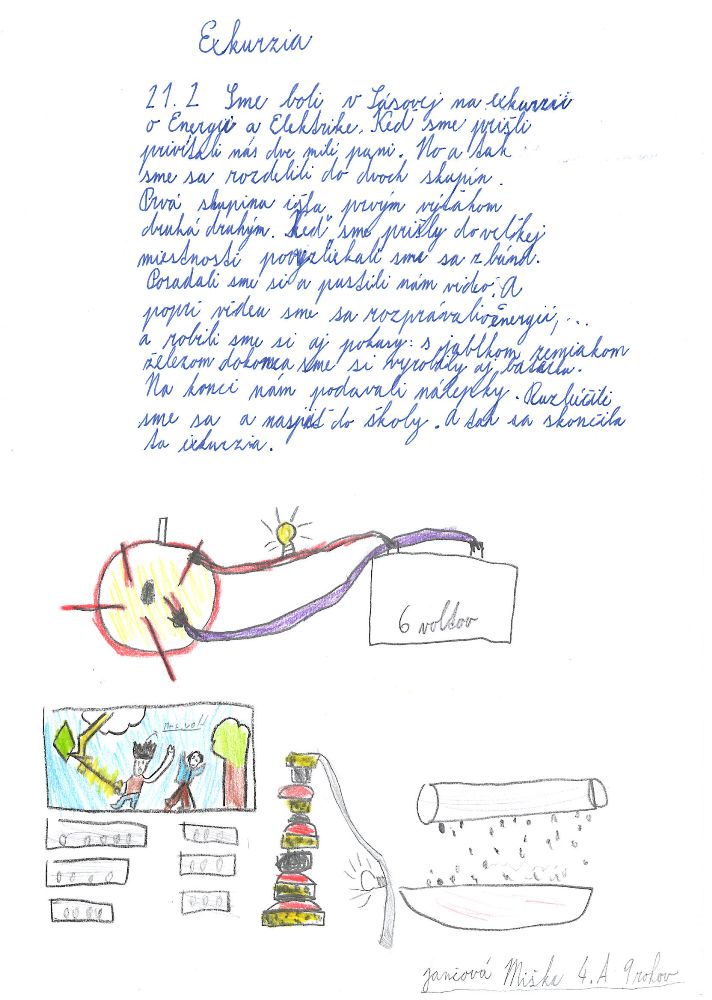 Exkurzia
21.2 Sme boli v Sásovej na exkurzii
o Energii a Elektrike. Keď sme prišli
privítali nás dve milé pani. No a tak
sme sa rozdelili do dvoch skupín.
Prvá skupina išla prvým výťahom
druhá druhým. Keď sme prišly do veľkej
miestnosti povyzliekali sme sa z búnd.
Posadali sme si a pustili nám video. A
popri videu sme sa rozprávali o energii, ...
a robili sme si aj pokusy: s jablkom zemiakom
železom dokonca sme si vyrobily aj batériu.
Na konci nám podavali nálepky. Rozlúčili
sme sa a naspäť do školy. A tak sa skončila
ta exkurzia.
6 voltov
Jančová Miška 4.A 9 rokov